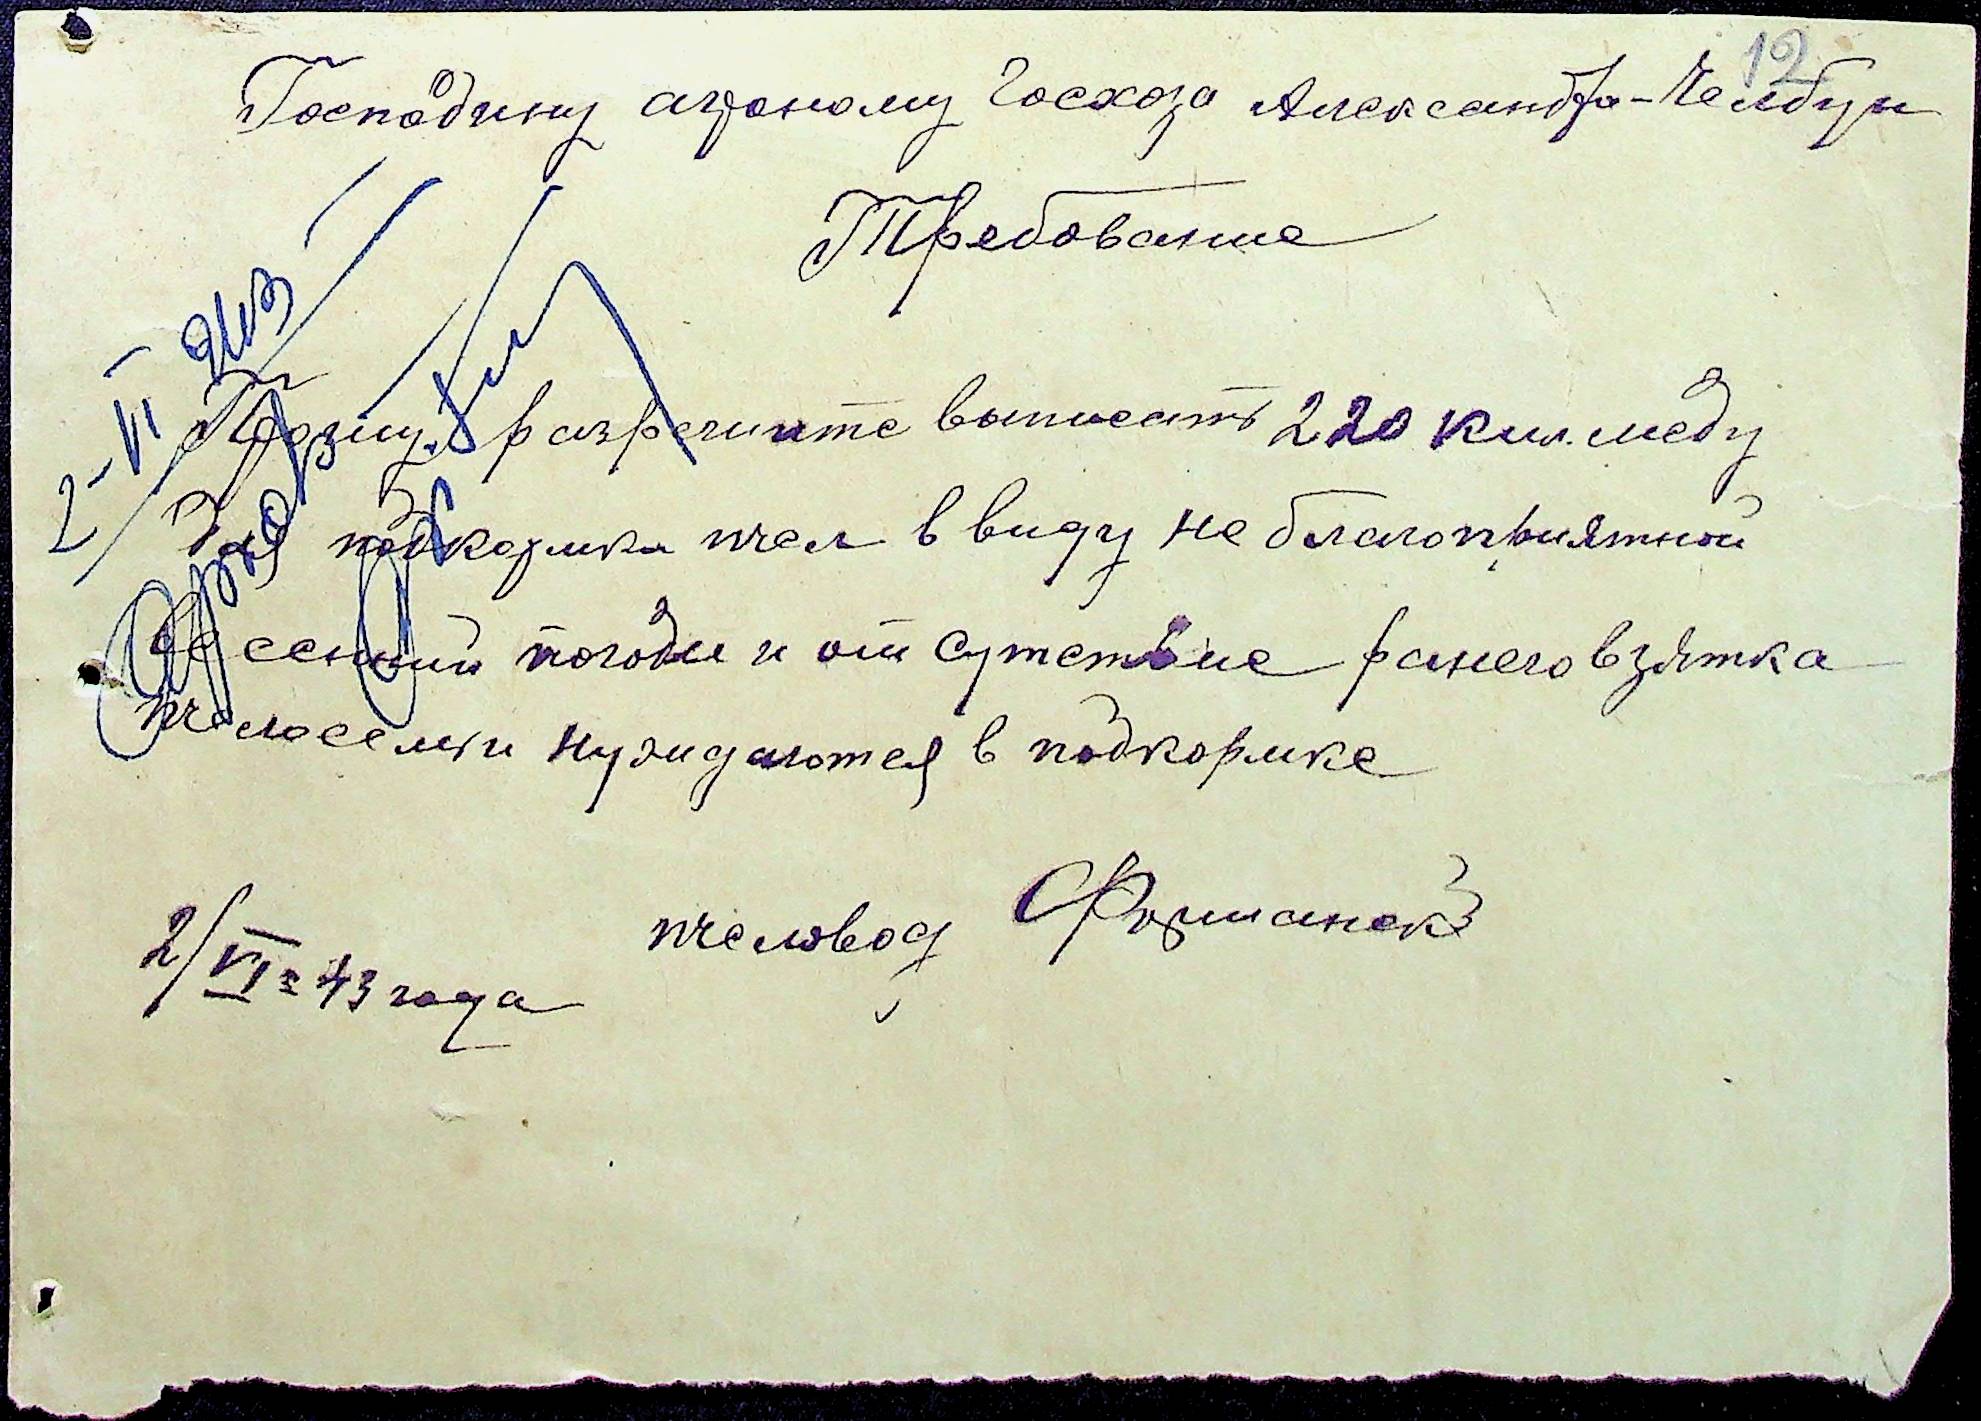 12
Господину агроному Госхоза Александра-Челбун
Требование
2-VI 943
Прошу разрешите выписать 220 кил. меду
Для подкормки пчел в виду не благоприятной
весенний погоды и отсутствие ранего взятка
пчелосемьи нуждаются в подкормке
пчеловод Фурманек
2/VI = 43 года